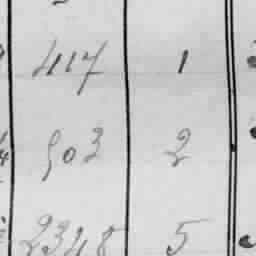 417 1
503 2
2348 5